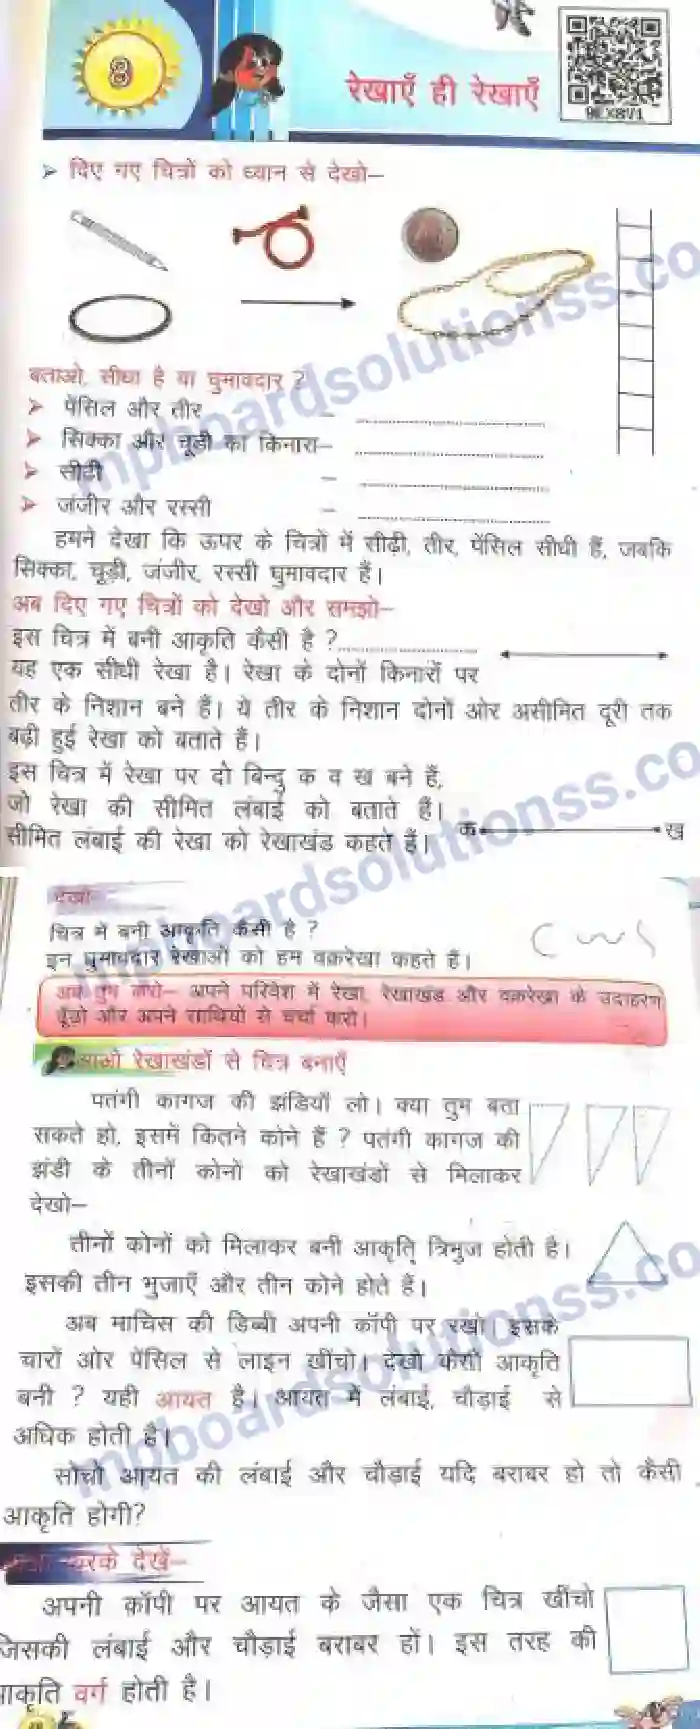 8
रेखाएँ ही रेखाएँ
➢ दिए गए चित्रों को ध्यान से देखो–
बताओ, सीधा है या घुमावदार ?
➢ पेंसिल और तीर – ........................
➢ सिक्का और चूड़ी का किनारा– ........................
➢ सीटी – ........................
➢ जंजीर और रस्सी – ........................
हमने देखा कि ऊपर के चित्रों में सीढ़ी, तीर, पेंसिल सीधी हैं, जबकि
सिक्का, चूड़ी, जंजीर, रस्सी घुमावदार हैं।
अब दिए गए चित्रों को देखो और समझो–
इस चित्र में बनी आकृति कैसी है ?........................
यह एक सीधी रेखा है। रेखा के दोनों किनारों पर
तीर के निशान बने हैं। ये तीर के निशान दोनों ओर असीमित दूरी तक
बढ़ी हुई रेखा को बताते हैं।
इस चित्र में रेखा पर दो बिन्दु क व ख बने हैं,
जो रेखा की सीमित लंबाई को बताते हैं।
सीमित लंबाई की रेखा को रेखाखंड कहते हैं।
क ख
देखो–
चित्र में बनी आकृति कैसी है ?
इन घुमावदार रेखाओं को हम वक्ररेखा कहते हैं।
अब तुम करो– अपने परिवेश में रेखा, रेखाखंड और वक्ररेखा के उदाहरण
ढूँढो और अपने साथियों से चर्चा करो।
आओ रेखाखंडों से चित्र बनाएँ
पतंगी कागज की झंडियाँ लो। क्या तुम बता
सकते हो, इसमें कितने कोने हैं ? पतंगी कागज की
झंडी के तीनों कोनों को रेखाखंडों से मिलाकर
देखो–
तीनों कोनों को मिलाकर बनी आकृति त्रिभुज होती है।
इसकी तीन भुजाएँ और तीन कोने होते हैं।
अब माचिस की डिब्बी अपनी कॉपी पर रखो। इसके
चारों ओर पेंसिल से लाइन खींचो। देखो कैसी आकृति
बनी ? यही आयत है। आयत में लंबाई, चौड़ाई से
अधिक होती है।
सोचो आयत की लंबाई और चौड़ाई यदि बराबर हो तो कैसी
आकृति होगी?
करके देखें–
अपनी कॉपी पर आयत के जैसा एक चित्र खींचो
जिसकी लंबाई और चौड़ाई बराबर हों। इस तरह की
आकृति वर्ग होती है।
mpboardsolutionss.co
mpboardsolutionss.co
mpboardsolutionss.co